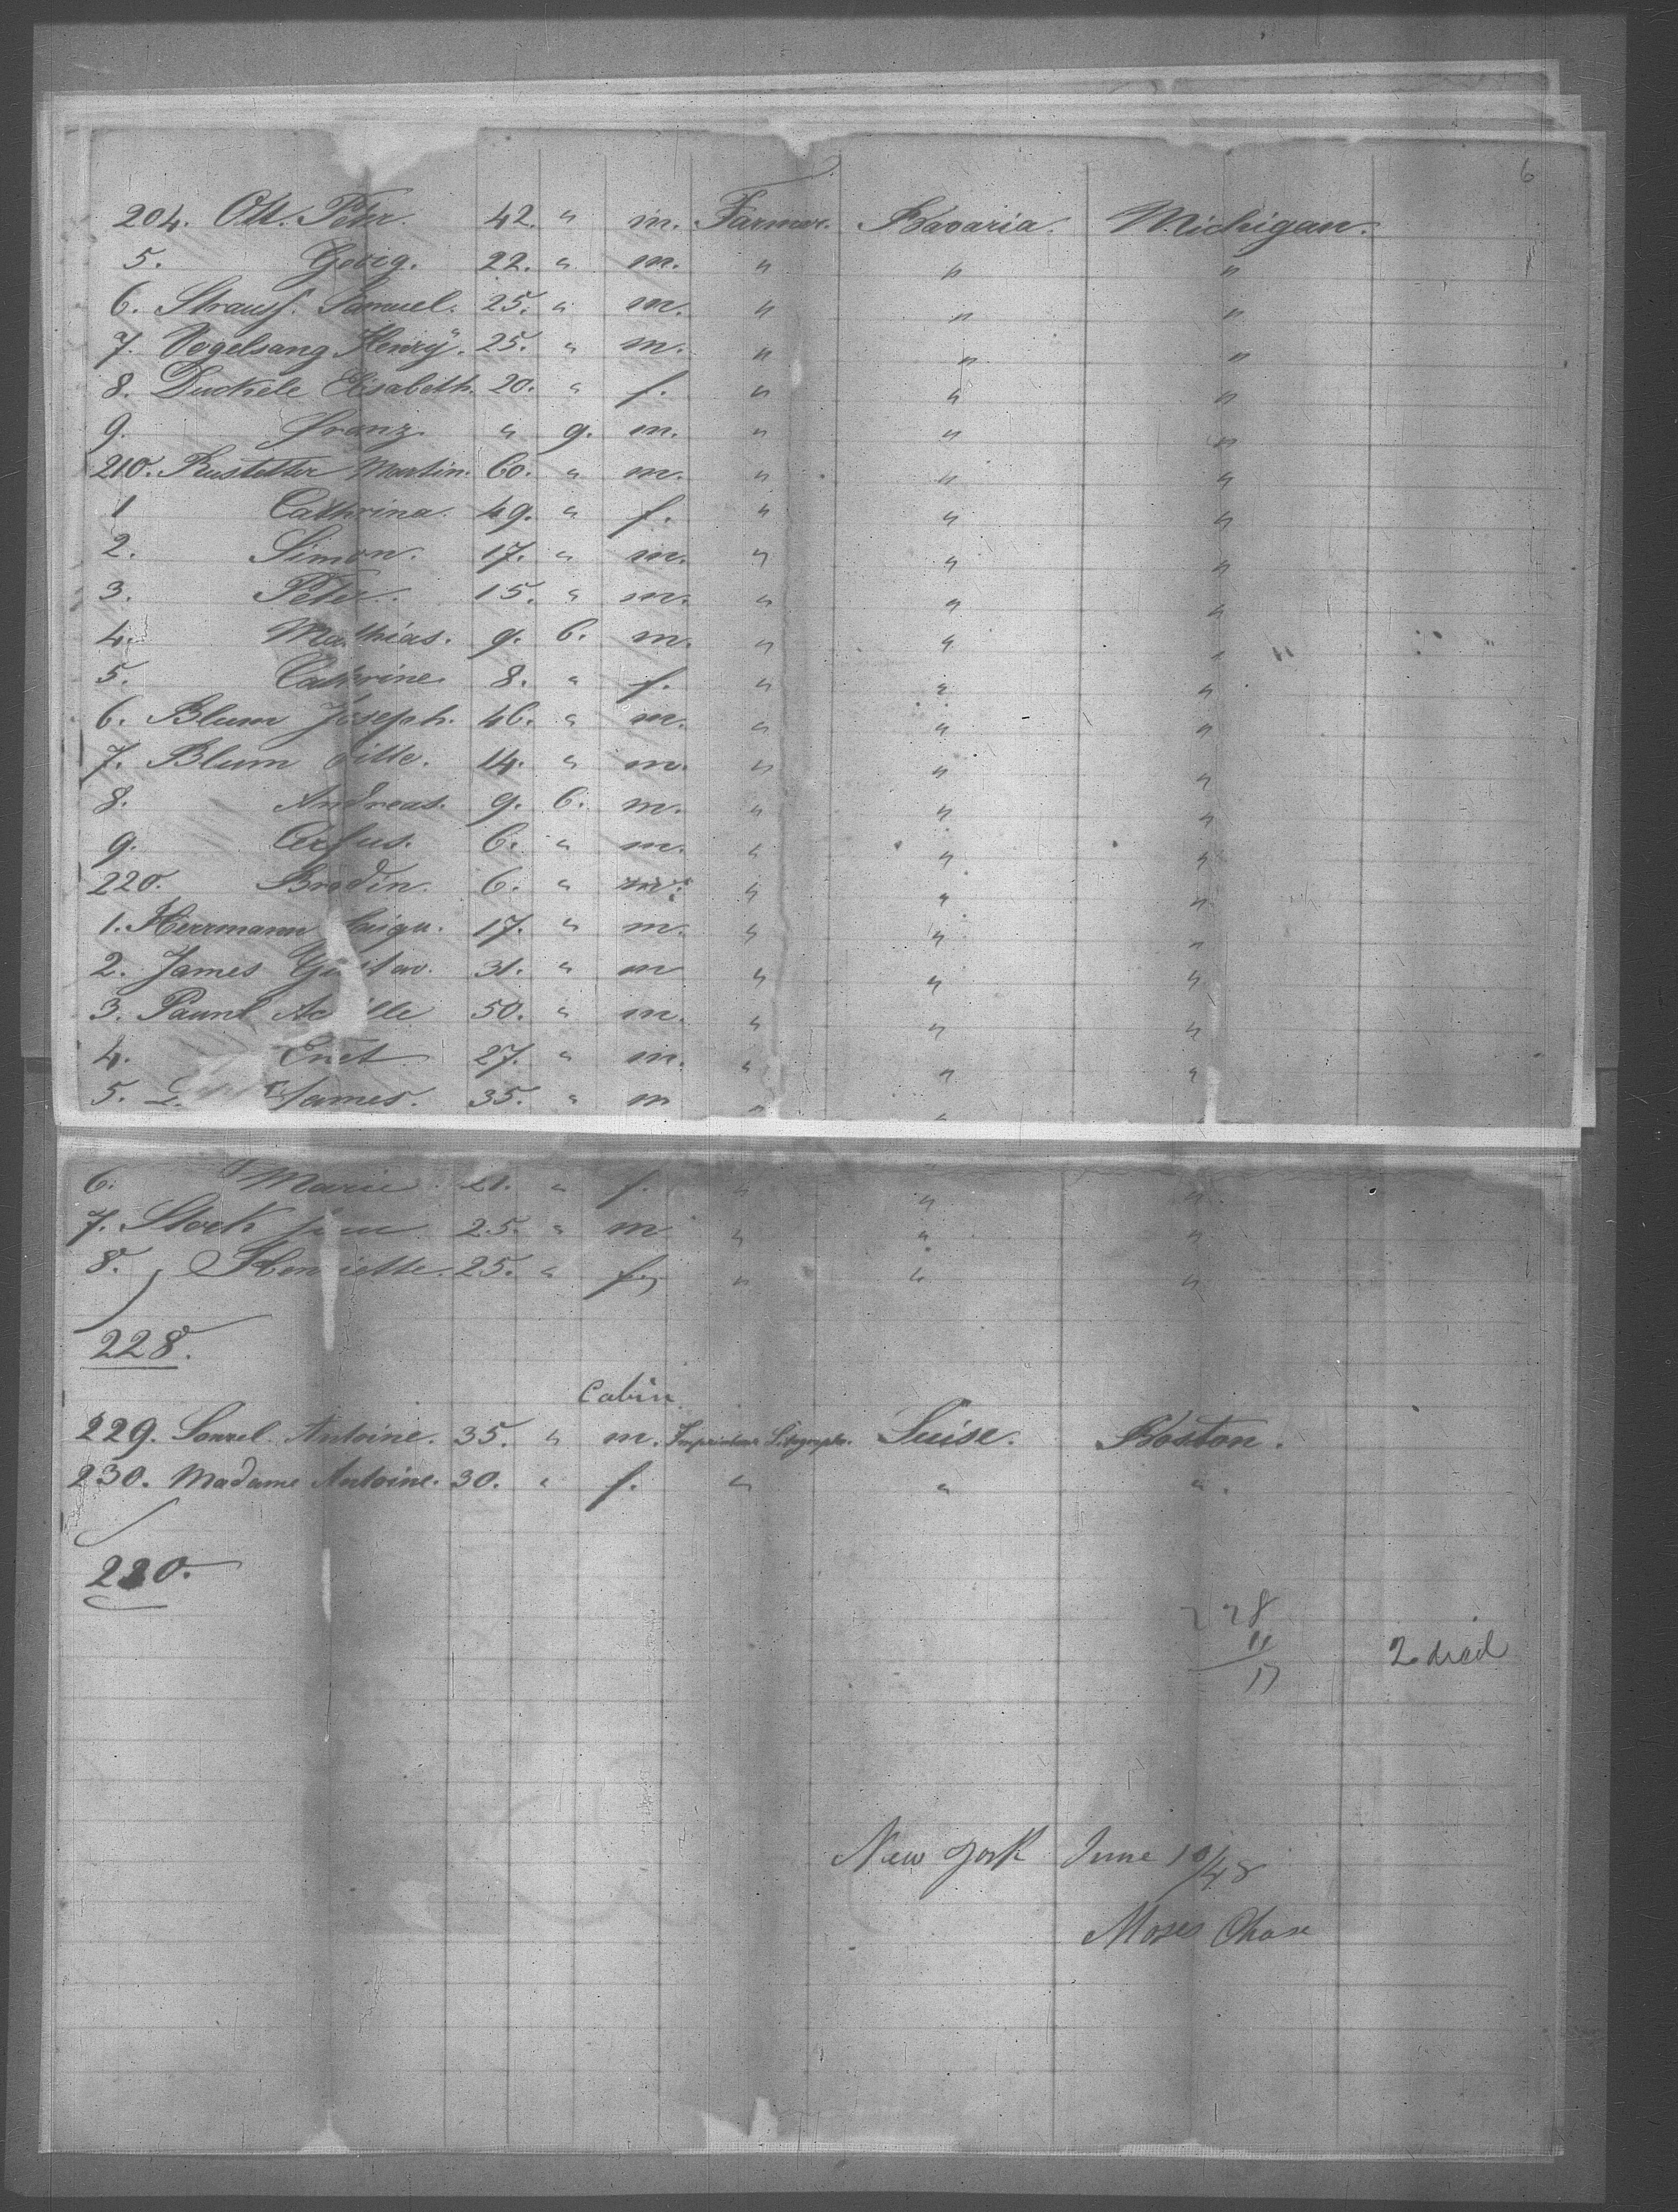 6
204. Ott. Peter. 42. " m. Farmer. Bavaria. Michigan.
5. Georg. 22. " m. " " "
6. Strauss. Samuel. 25. " m. " " "
7. Vogelsang Henry. 25. " m. " " "
8. Duckele Elisabeth. 20. " f. " " "
9. Franz. " 9. m. " " "
210. Rustetter Martin. 60. " m. " " "
1 Cathrina. 49. " f. " " "
2. Simon. 17. " m. " " "
3. Peter. 15. " m. " " "
4. Mathias. 9. 6. m. " " "
5. Cathrine. 8. " f. " " "
6. Blum Joseph. 46. " m. " " "
7. Blum 14. " m. " " "
8. Andreas. 9. 6. m. " " "
9. 6. " m. " " "
220. 6. " m. " " "
1. Herrmann 17. " m. " " "
2. James Gustav. 31. " m " " "
3. 50. " m. " " "
4. 27. " m. " " "
5. James. 35. " m " "
6. Marie. 21. " f. " " "
7. Stock 25. " m " " "
8. Henriette. 25. " f. " " "
228.
Cabin
229. Antoine. 35. " m. Suise. Boston.
230. Madame Antoine. 30. " f. " " ".
230.
228
11
17
2 dead
New York June 10/48
Moses Chase